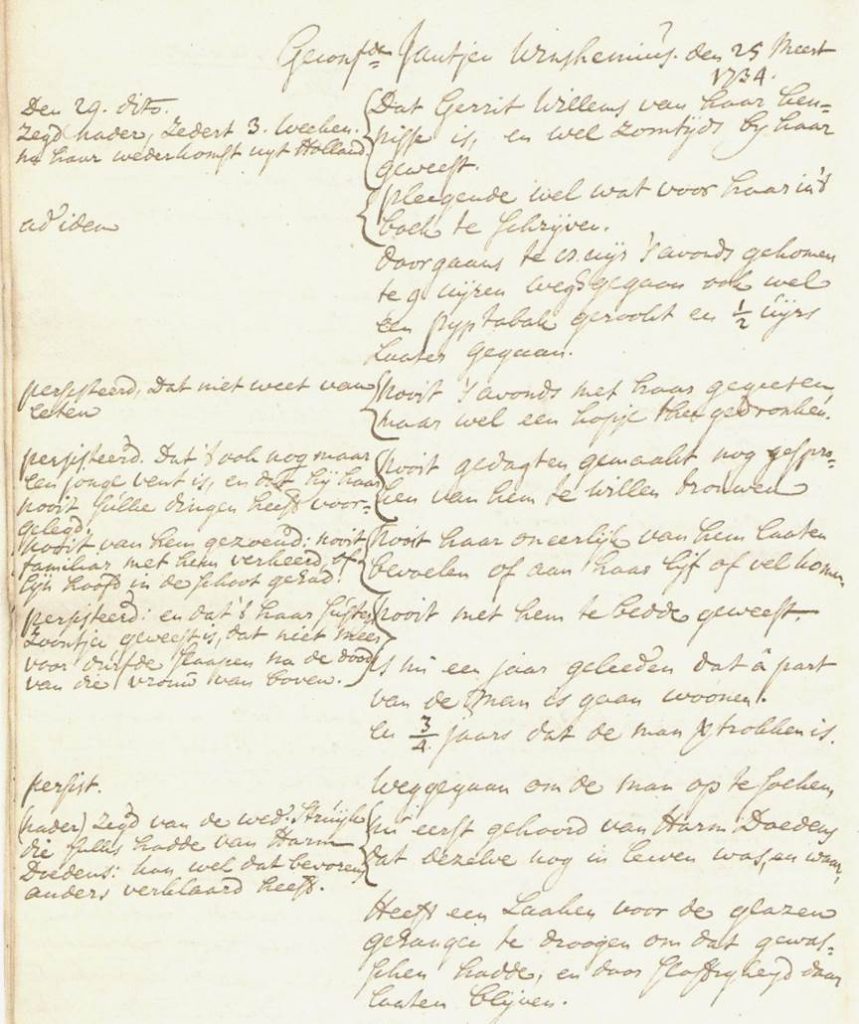 Geconfde Jantjen Winshemius. den 25 Meert
1734.
Den 29. dito.
Zegd nader, zedert 3. weeken.
na haar wederkomst uyt Holland.
ad idem
Dat Gerrit Willems van haar ken=
nisse is, en wel zomtyds by haar
geweest.
pleegende wel wat voor haar in't
boek te schrijven.
doorgaans te uijr 's avonds gekomen
te 9 uijren weg gegaan ook wel
een pyp tabak gerookt en 1/2 uijrs
laater gegaan.
persisteerd, Dat niet weet van
eeten
nooit 's avonds met haar gegeeten,
maar wel een kopje thee gedronken.
persisteerd. Dat 't ook nog maar
een jonge vent is, en dat hij haar
nooit sulke dingen heeft voor=
gelegd.
nooit gedagten gemaakt nog gespro=
ken van hem te willen trouwen
nooit van hem gezoend: nooit
familiar met hem verkeerd, of
zijn hoofd in de schoot gehad.
nooit haar oneerlijk van hem laaten
bevoelen of aan haar lijf of vel komen
persisteerd: en dat 't haar suster
zoontje geweest is, dat niet meer
voor durfde slaapen na de dood
van die vrouw van boven.
nooit met hem te bedde geweest.
is nu een jaar geleeden dat apart
van de man is gaan woonen.
en 3/4 jaars dat de man vertrokken is.
persist.
weggegaan om de man op te soeken,
(nader) Zegd van de wed. Struijk
die sulks hadde van Harm
Doedens: kan wel dat bevorens
anders verklaard heeft.
nu eerst gehoord van Harm Doedens
dat dezelve nog in leeven was, en waar,
Heeft een Laaken voor de glazen
gehangen te droogen om dat gewas=
schen hadde, en door sloffigheyd daar
laaten blijven.